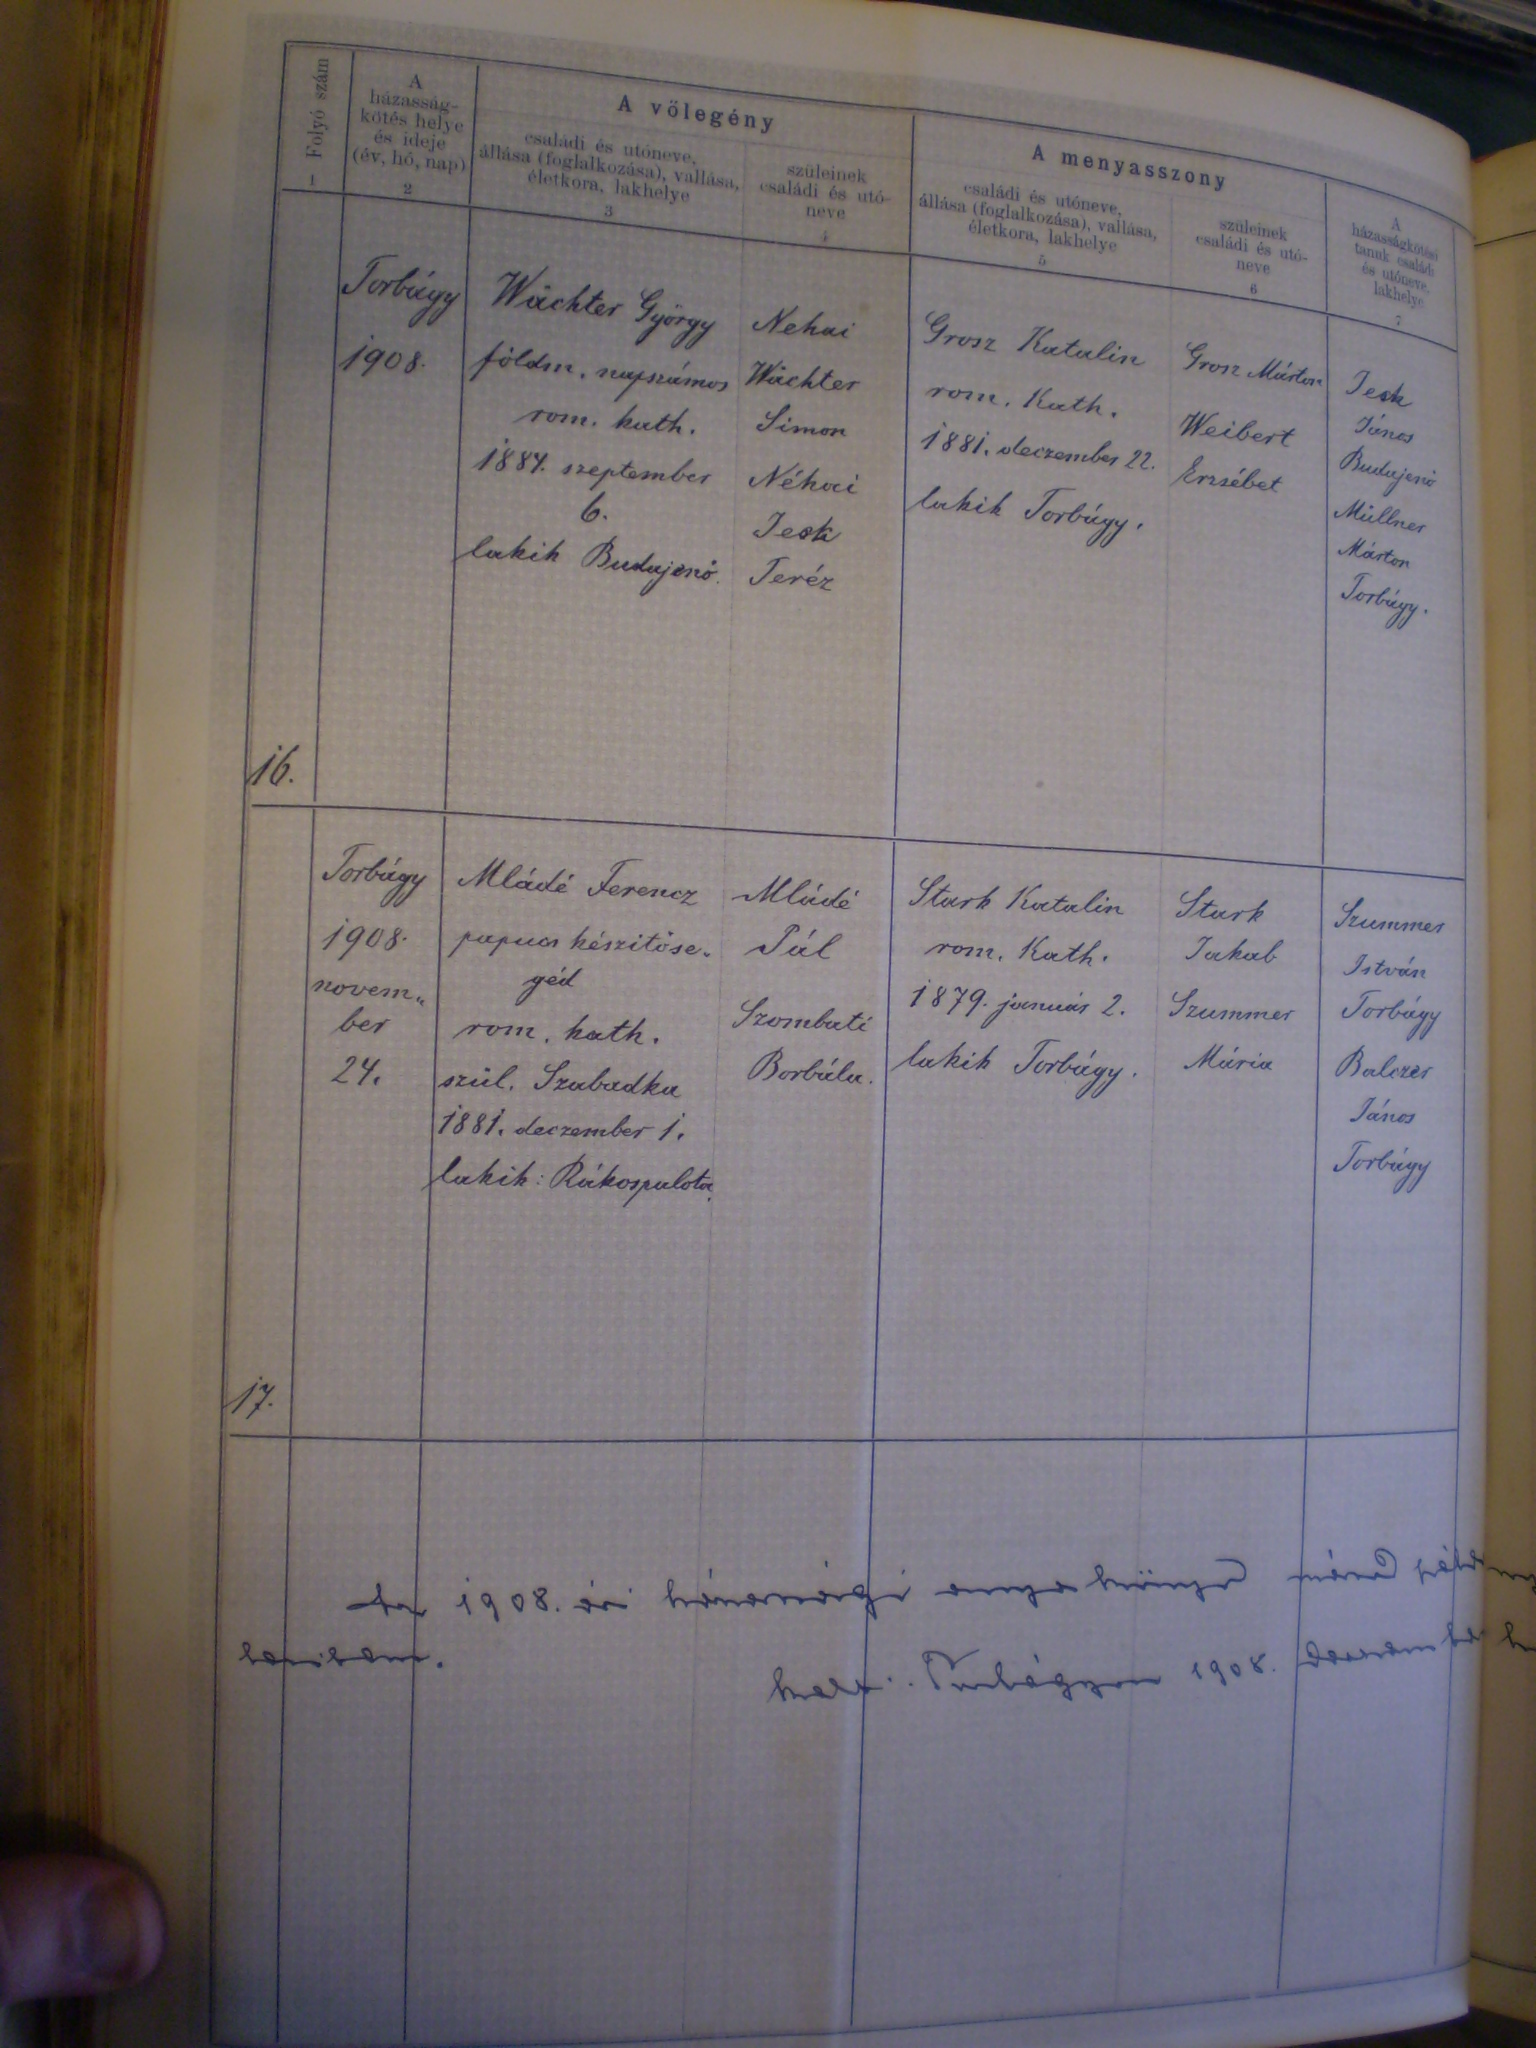 Folyó szám
1
A
házasság-
kötés helye
és ideje
(év, hó, nap)
2
A vőlegény
családi és utóneve,
állása (foglalkozása), vallása,
életkora, lakhelye
3
szüleinek
családi és utó-
neve
4
A menyasszony
családi és utóneve,
állása (foglalkozása), vallása,
életkora, lakhelye
5
szüleinek
családi és utó-
neve
6
A
házasságkötési
tanuk családi
és utóneve,
lakhelye
7
16.
Torbágy
1908.
Wächter György
földm. napszámos
rom. kath.
1884. szeptember
6.
lakik Budajenő.
Nehai
Wächter
Simon
Néhai
Jesk
Teréz
Grosz Katalin
rom. Kath.
1881. deczember 22.
lakik Torbágy.
Grosz Márton
Weibert
Erzsébet
Jesk
János
Budajenő
Müllner
Márton
Torbágy.
17.
Torbágy
1908.
novem„
ber
24.
Mládé Ferencz
papucs készitőse„
géd
rom. kath.
szül. Szabadka
1881. deczember 1.
lakik: Rákospalota.
Mládé
Pál
Szombati
Borbála.
Stark Katalin
rom. Kath.
1879. január 2.
lakik Torbágy.
Stark
Jakab
Szummer
Mária
Szummer
István
Torbágy
Balczer
János
Torbágy
Az 1908. évi házassági anyakönyv másod
Kelt. Torbágyon 1908.